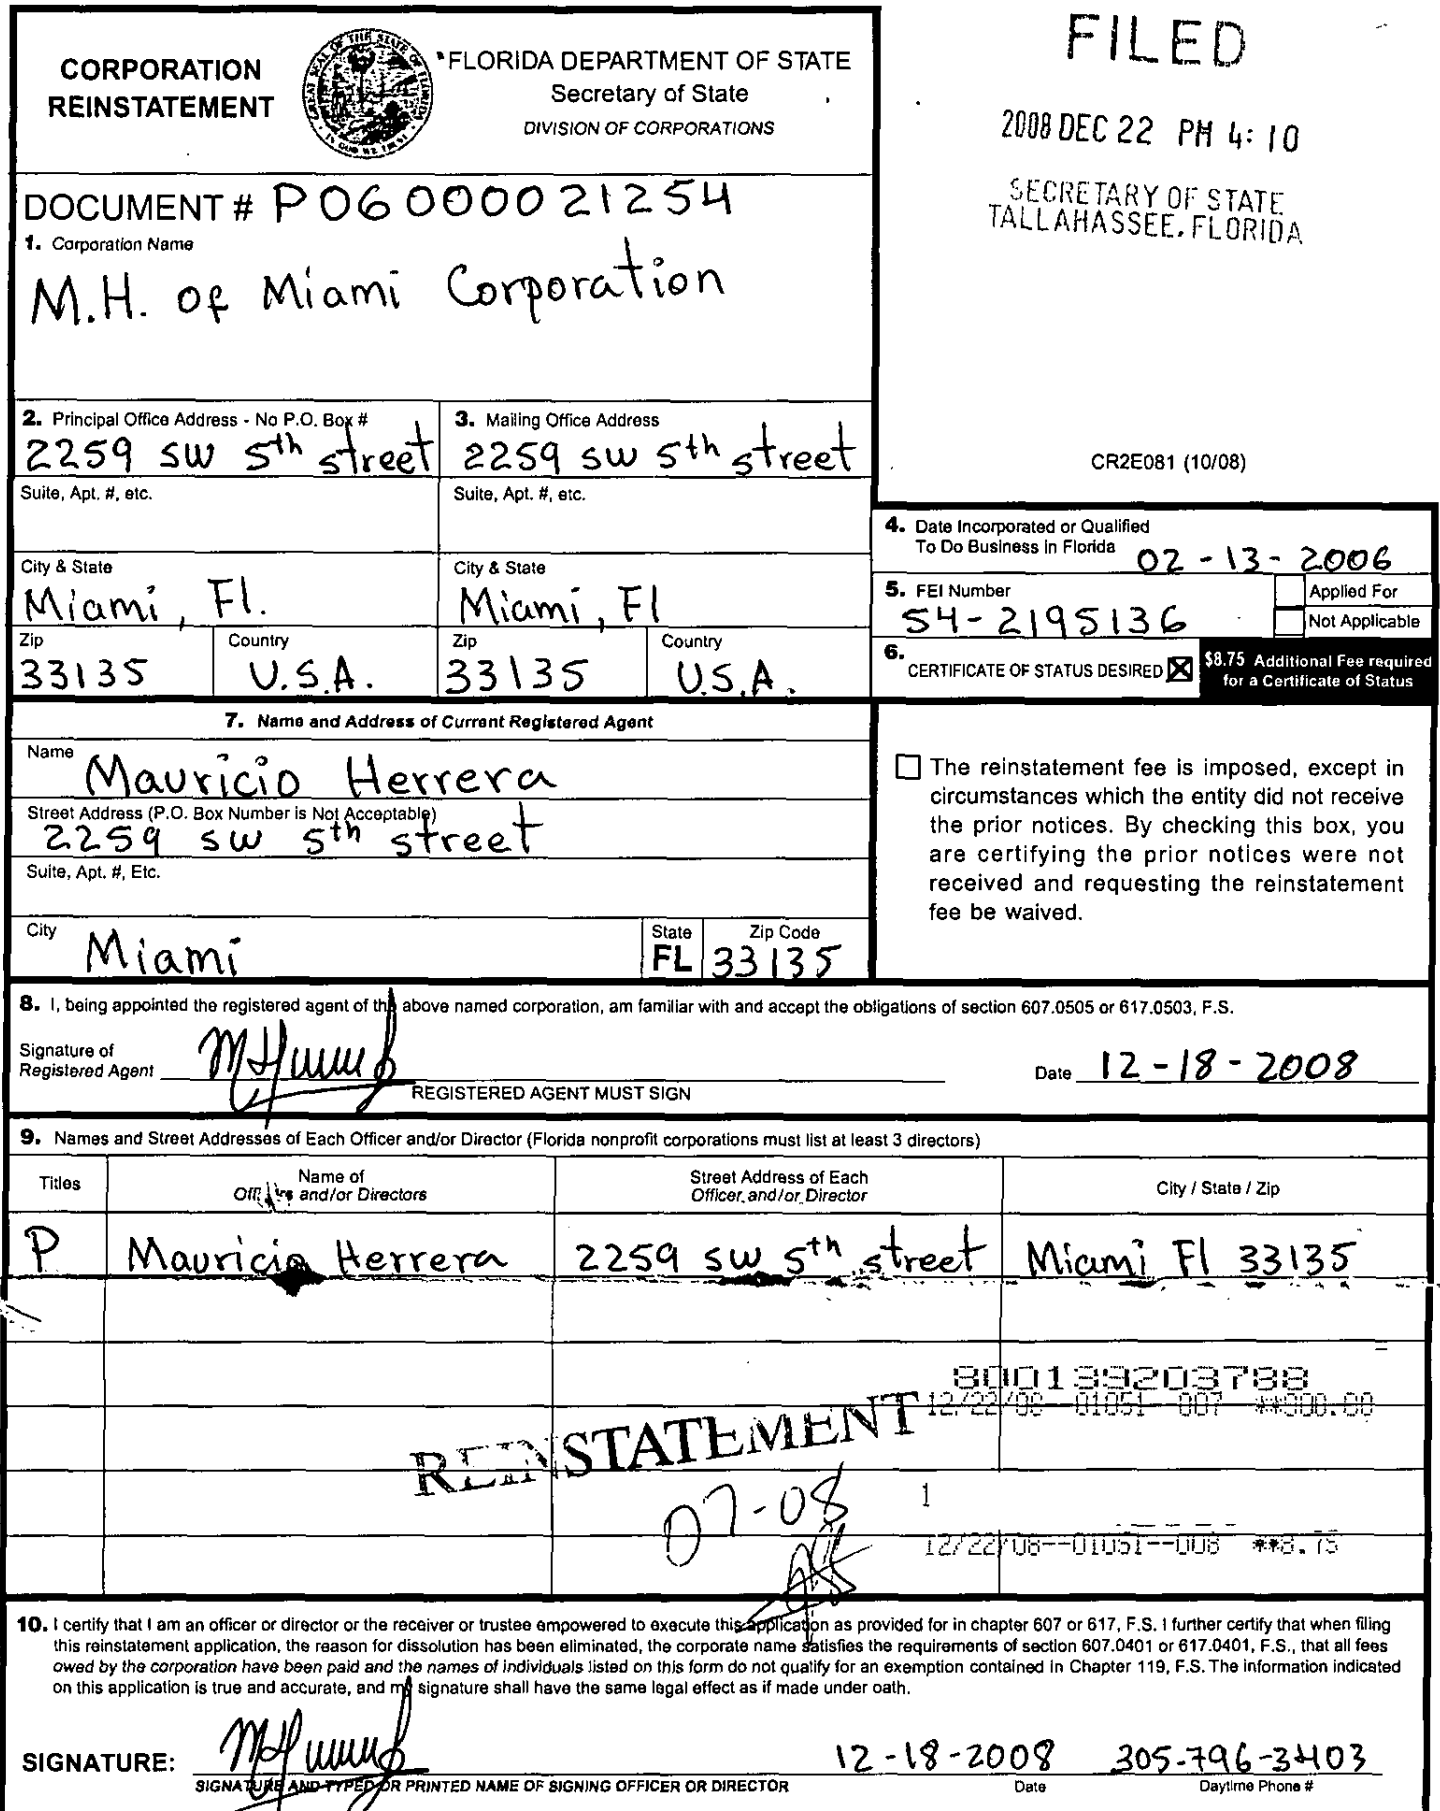 CORPORATION
REINSTATEMENT
FLORIDA DEPARTMENT OF STATE
Secretary of State
DIVISION OF CORPORATIONS
FILED
2008 DEC 22 PM 4:10
SECRETARY OF STATE
TALLAHASSEE, FLORIDA
DOCUMENT # P06000021254
1. Corporation Name
M.H. of Miami Corporation
2. Principal Office Address - No P.O. Box #
2259 SW 5th street
3. Mailing Office Address
2259 SW 5th street
CR2E081 (10/08)
Suite, Apt. #, etc.
Suite, Apt. #, etc.
4. Date Incorporated or Qualified
To Do Business in Florida 02-13-2006
City & State
Miami, Fl.
City & State
Miami, Fl
5. FEI Number
54-2195136
Applied For
Not Applicable
Zip
33135
Country
U.S.A.
Zip
33135
Country
U.S.A.
6. CERTIFICATE OF STATUS DESIRED
$8.75 Additional Fee required
for a Certificate of Status
7. Name and Address of Current Registered Agent
Name
Mauricio Herrera
Street Address (P.O. Box Number is Not Acceptable)
2259 SW 5th street
Suite, Apt. #, Etc.
City
Miami
State
FL
Zip Code
33135
The reinstatement fee is imposed, except in
circumstances which the entity did not receive
the prior notices. By checking this box, you
are certifying the prior notices were not
received and requesting the reinstatement
fee be waived.
8. I, being appointed the registered agent of the above named corporation, am familiar with and accept the obligations of section 607.0505 or 617.0503, F.S.
Signature of
Registered Agent
REGISTERED AGENT MUST SIGN
Date 12-18-2008
9. Names and Street Addresses of Each Officer and/or Director (Florida nonprofit corporations must list at least 3 directors)
Titles
Name of
Officers and/or Directors
Street Address of Each
Officer and/or Director
City / State / Zip
P
Mauricio Herrera
2259 SW 5th street
Miami Fl 33135
800139203788
12/22/08--01051--007 **300.00
REINSTATEMENT
07-08
1
12/22/08--01051--008 **8.75
10. I certify that I am an officer or director or the receiver or trustee empowered to execute this application as provided for in chapter 607 or 617, F.S. I further certify that when filing
this reinstatement application, the reason for dissolution has been eliminated, the corporate name satisfies the requirements of section 607.0401 or 617.0401, F.S., that all fees
owed by the corporation have been paid and the names of individuals listed on this form do not qualify for an exemption contained in Chapter 119, F.S. The information indicated
on this application is true and accurate, and my signature shall have the same legal effect as if made under oath.
SIGNATURE:
12-18-2008
305-796-3403
SIGNATURE AND TYPED OR PRINTED NAME OF SIGNING OFFICER OR DIRECTOR
Date
Daytime Phone #